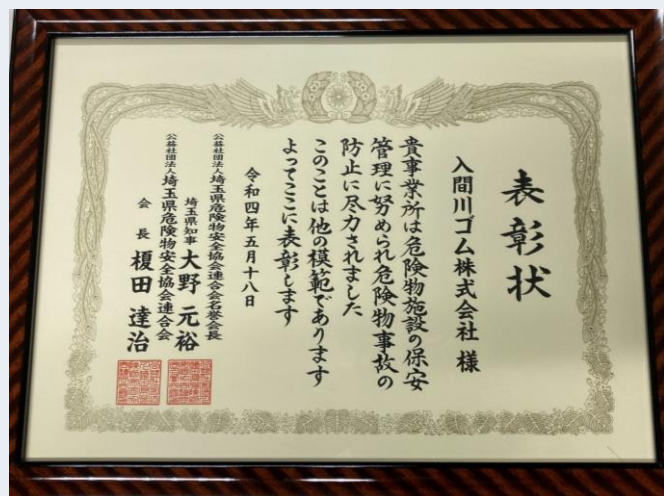 表彰状
入間川ゴム株式会社 様
貴事業所は危険物施設の保安
管理に努められ危険物事故の
防止に尽力されました
このことは他の模範であります
よってここに表彰します
令和四年五月十八日
公益社団法人埼玉県危険物安全協会連合会名誉会長
埼玉県知事 大野元裕
公益社団法人埼玉県危険物安全協会連合会
会長 榎田達治